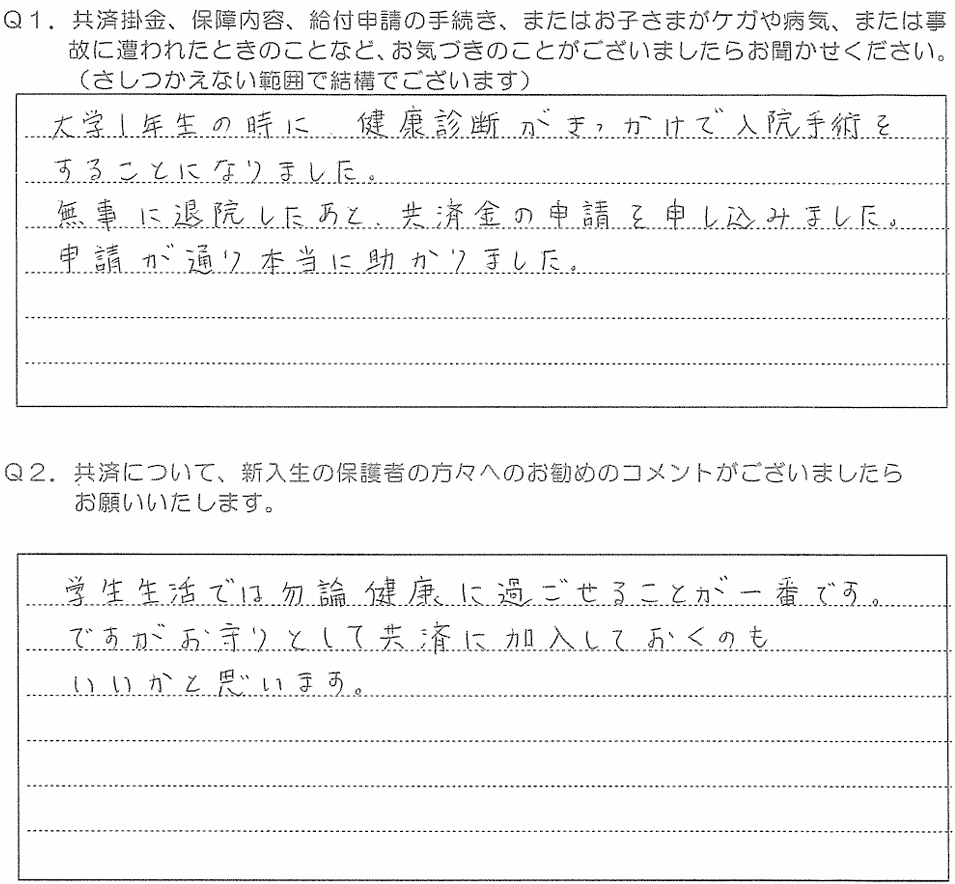 Q1. 共済掛金、保障内容、給付申請の手続き、またはお子さまがケガや病気、または事
故に遭われたときのことなど、お気づきのことがございましたらお聞かせください。
（さしつかえない範囲で結構でございます）
大学1年生の時に、健康診断がきっかけで入院手術を
することになりました。
無事に退院したあと、共済金の申請を申し込みました。
申請が通り本当に助かりました。
Q2. 共済について、新入生の保護者の方々へのお勧めのコメントがございましたら
お願いいたします。
学生生活では勿論健康に過ごせることが一番です。
ですがお守りとして共済に加入しておくのも
いいかと思います。